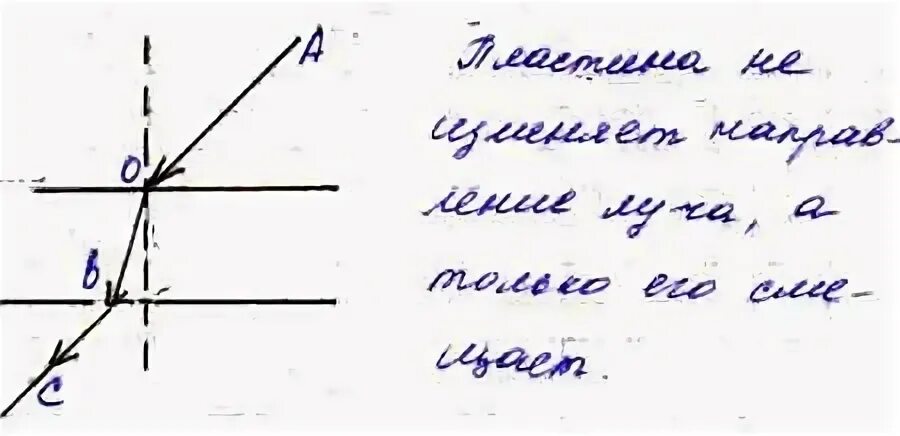 A
O
B
C
Пластина не
изменяет направ-
ление луча, а
только его сме-
щает.